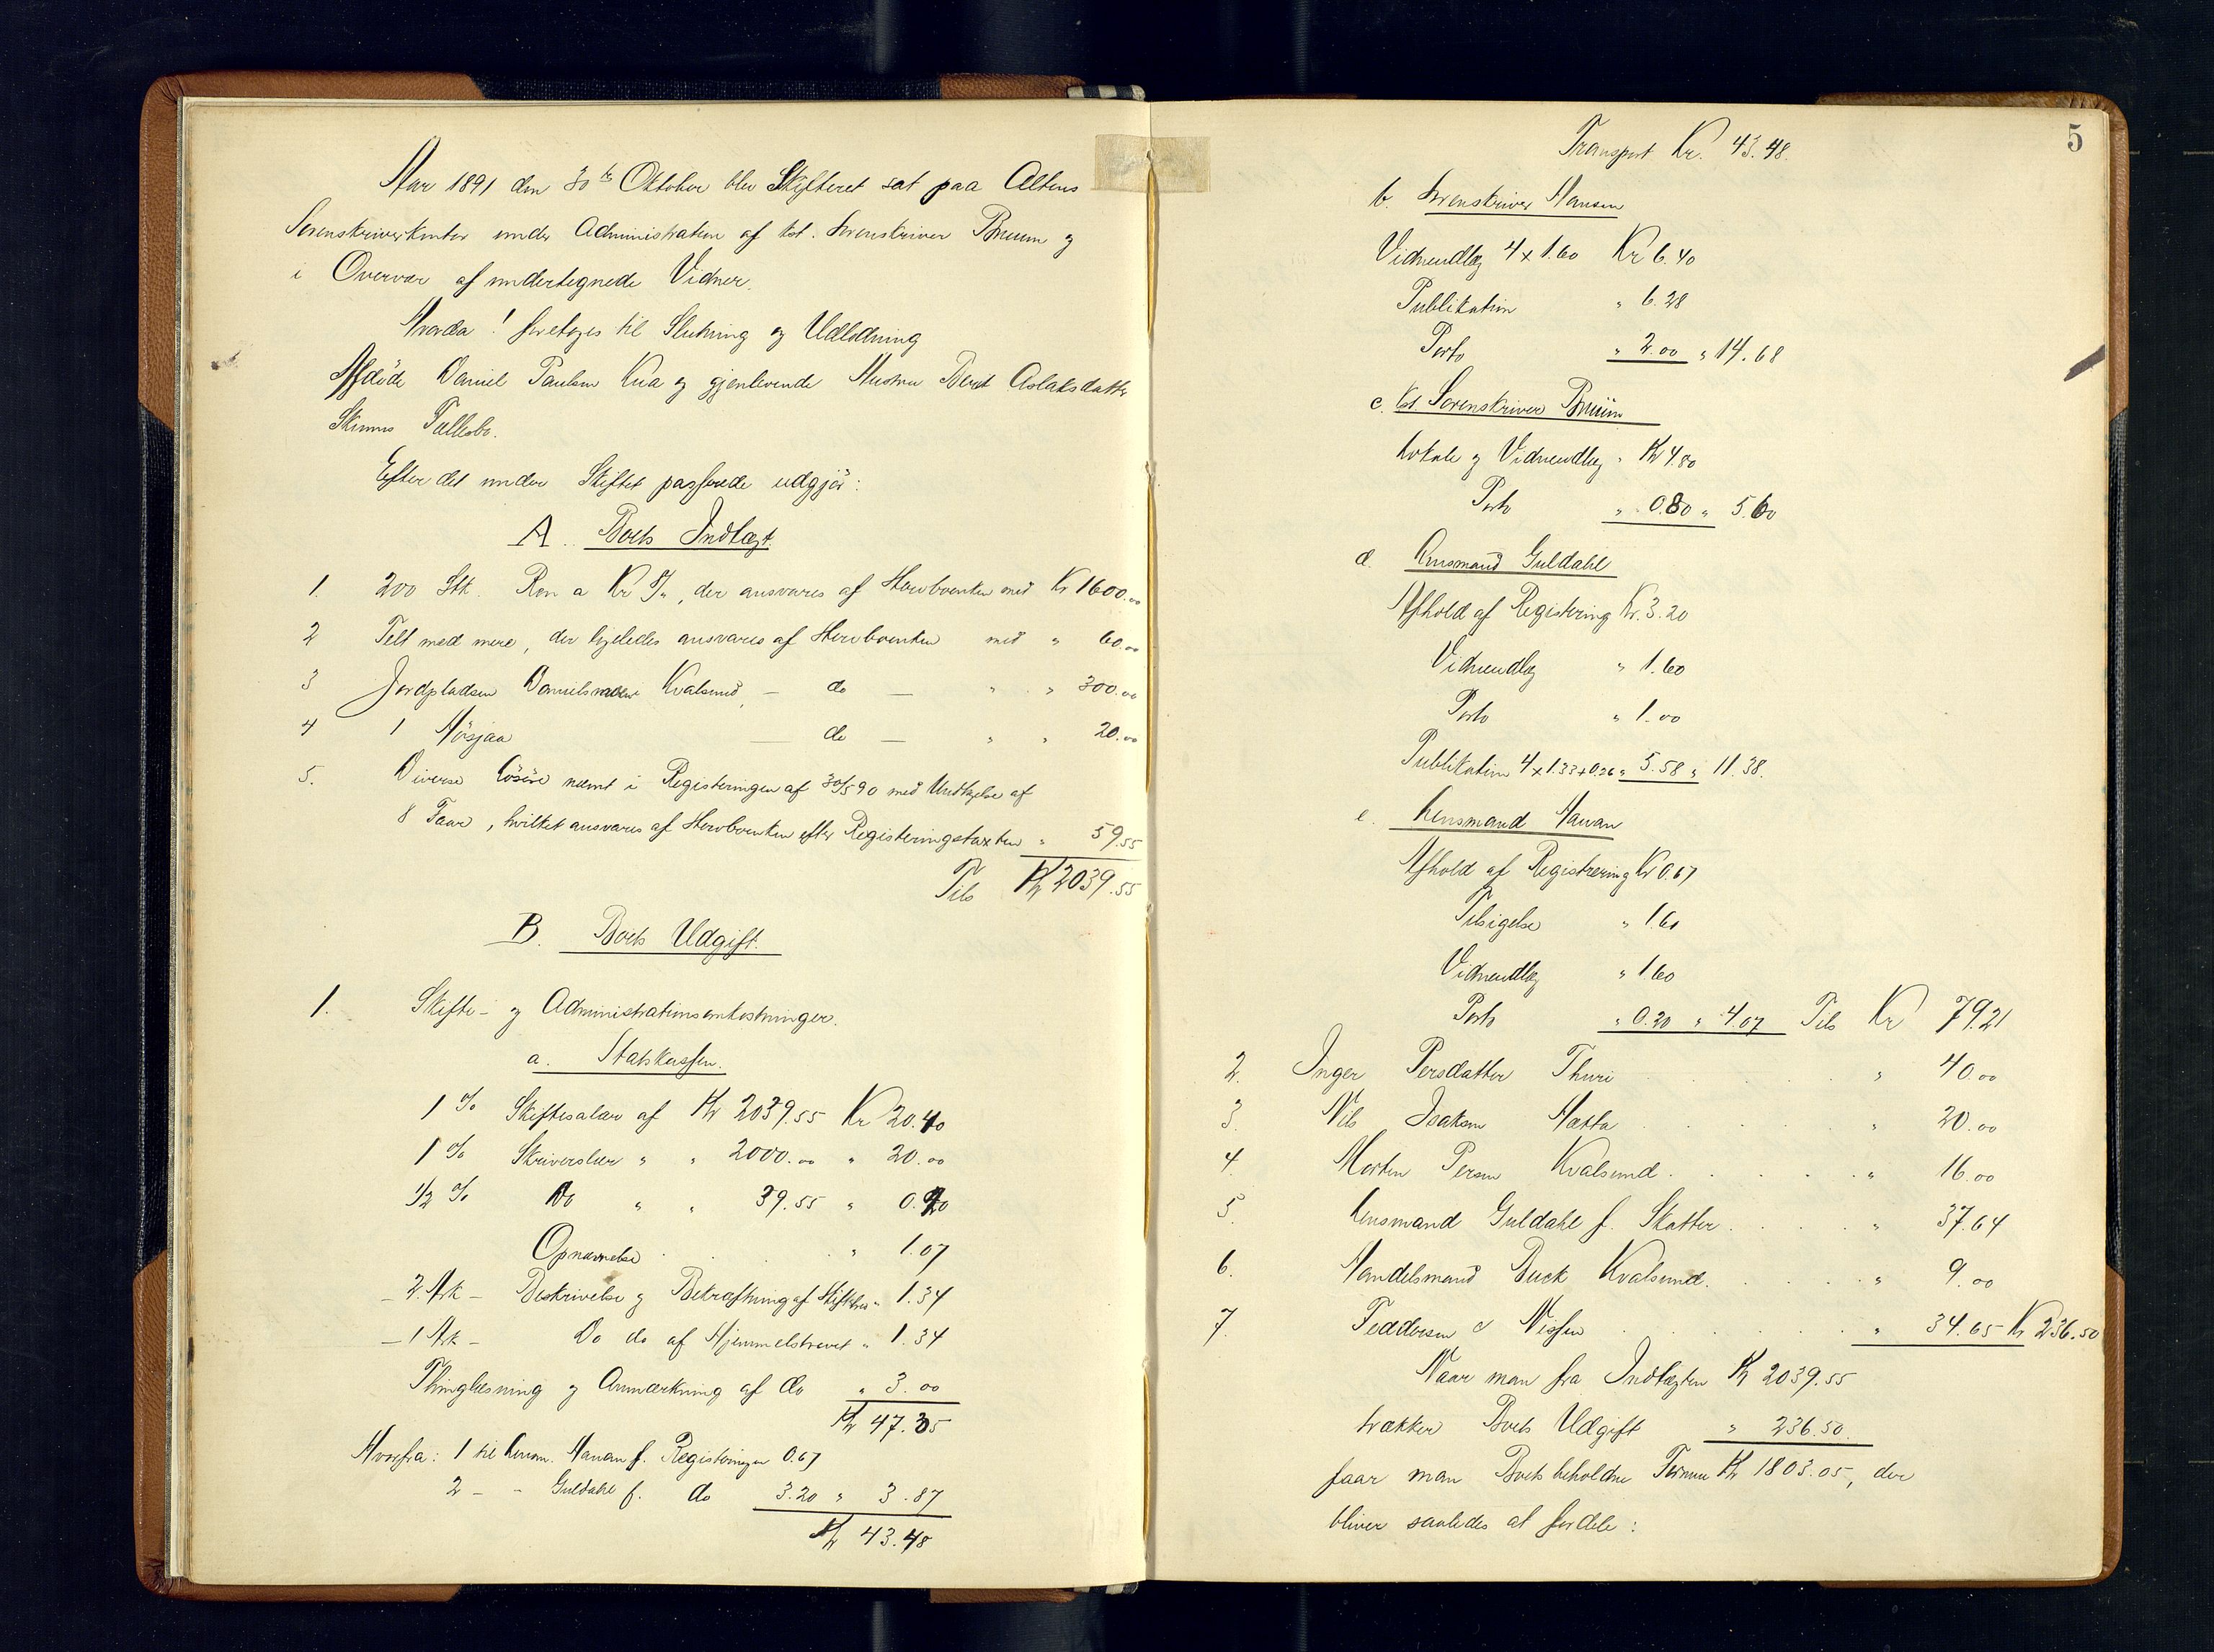 Aar 1891 den 30te Oktober blev Skifteret sat paa Altens
Sorenskriverkontor under Administration af kst. Sorenskriver Bruun og
i Overvær af undertegnede Vidner.
Hvorda! foretoges til Slutning og Udlodning
Afdöde Daniel Paulsen Kua og gjenlevende Hustru Berit Aslaksdatter
Skinns Fællesbo.
Efter det under Skiftet passerede udgjör:
A. Boets Indtægt.
1. 200 Stk. Ren a Kr 8/", der ansvares af Stervboenken med Kr 1600.00
2 Telt med mere, der ligeledes ansvares af Stervboenken med " 60.00
3 Jordpladsen Kvalsund, — do — " " 300.00
4 1 Nösjaa — do — " " 20.00
5. Diverse Lösöre nævnt i Registeringen af 30/5 90 med Undtagelse af
8 Faar, hvilket ansvares af Stervboenken efter Registeringstaxten " 59.55
Tils Kr 2039.55
B. Boets Udgift.
1. Skifte- og Administrationsomkostninger.
a. Statskassen.
1 % Skiftesalær af Kr 2039.55 Kr 20.40
1 % Skriversalær " " 2000.00 " 20.00
1/2 % Do " " 39.55 " 0.20
Opnævnelse " 1.07
- 2 Ark - Beskrivelse og Bekræftning af " 1.34
- 1 Ark - Do do af Hjemmelsbrevet " 1.34
Thinglæsning og Anmærkning af do " 3.00
Kr 47.35
Hvorfra: 1 til Lensm. Hanan f. Registeringen 0.67
2 - - Guldahl f. do 3.20 " 3.87
Kr 43.48
5
Transport Kr. 43.48.
b. Sorenskriver Hansen
Vidneudlæg 4 x 1.60 Kr 6.40
Publikation " 6.28
Porto " 2.00 " 14.68
c. kst. Sorenskriver Bruün
Lokale og Vidneudlæg " Kr 4.80
Porto " 0.80 " 5.60
d. Lensmand Guldahl
Afhold af Registering Kr. 3.20
Vidneudlæg " 1.60
Porto " 1.00
Publikation 4 x 1.33 + 0.26 " 5.58 " 11.38.
e. Lensmand Hanan
Afhold af Registrering Kr 0.67
Tilsigelse " 1.60
Vidneudlæg " 1.60
Porto " 0.20 " 4.07 Tils Kr 79.21
2. Inger Persdatter Thuri " 40.00
3. Nils Isaksen Hætta " 20.00
4. Morten Persen Kvalsund " 16.00
5. Lensmand Guldahl f. Skatter " 37.64
6. Handelsmand Buck Kvalsund " 9.00
7. Feddersen & Nissen " 34.65 Kr 236.50
Naar man fra Indtægten Kr 2039.55
trækker Boets Udgift " 236.50.
faar man Boets beholdne Formue Kr 1803.05, der
bliver saaledes at fordele: